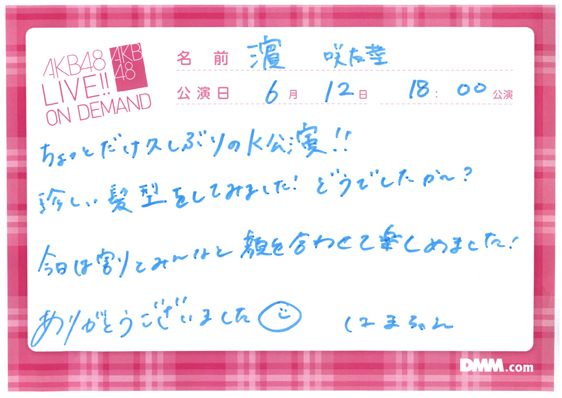 AKB48
LIVE!!
ON DEMAND
AKB
48
名前 濵 咲友菜
公演日 6月12日 18:00公演
ちょっとだけ久しぶりのK公演!!
珍しい髪型をしてみました! どうでしたか〜?
今日は割とみんなと顔を合わせて楽しめました!
ありがとうございました はまちゃん
DMM.com